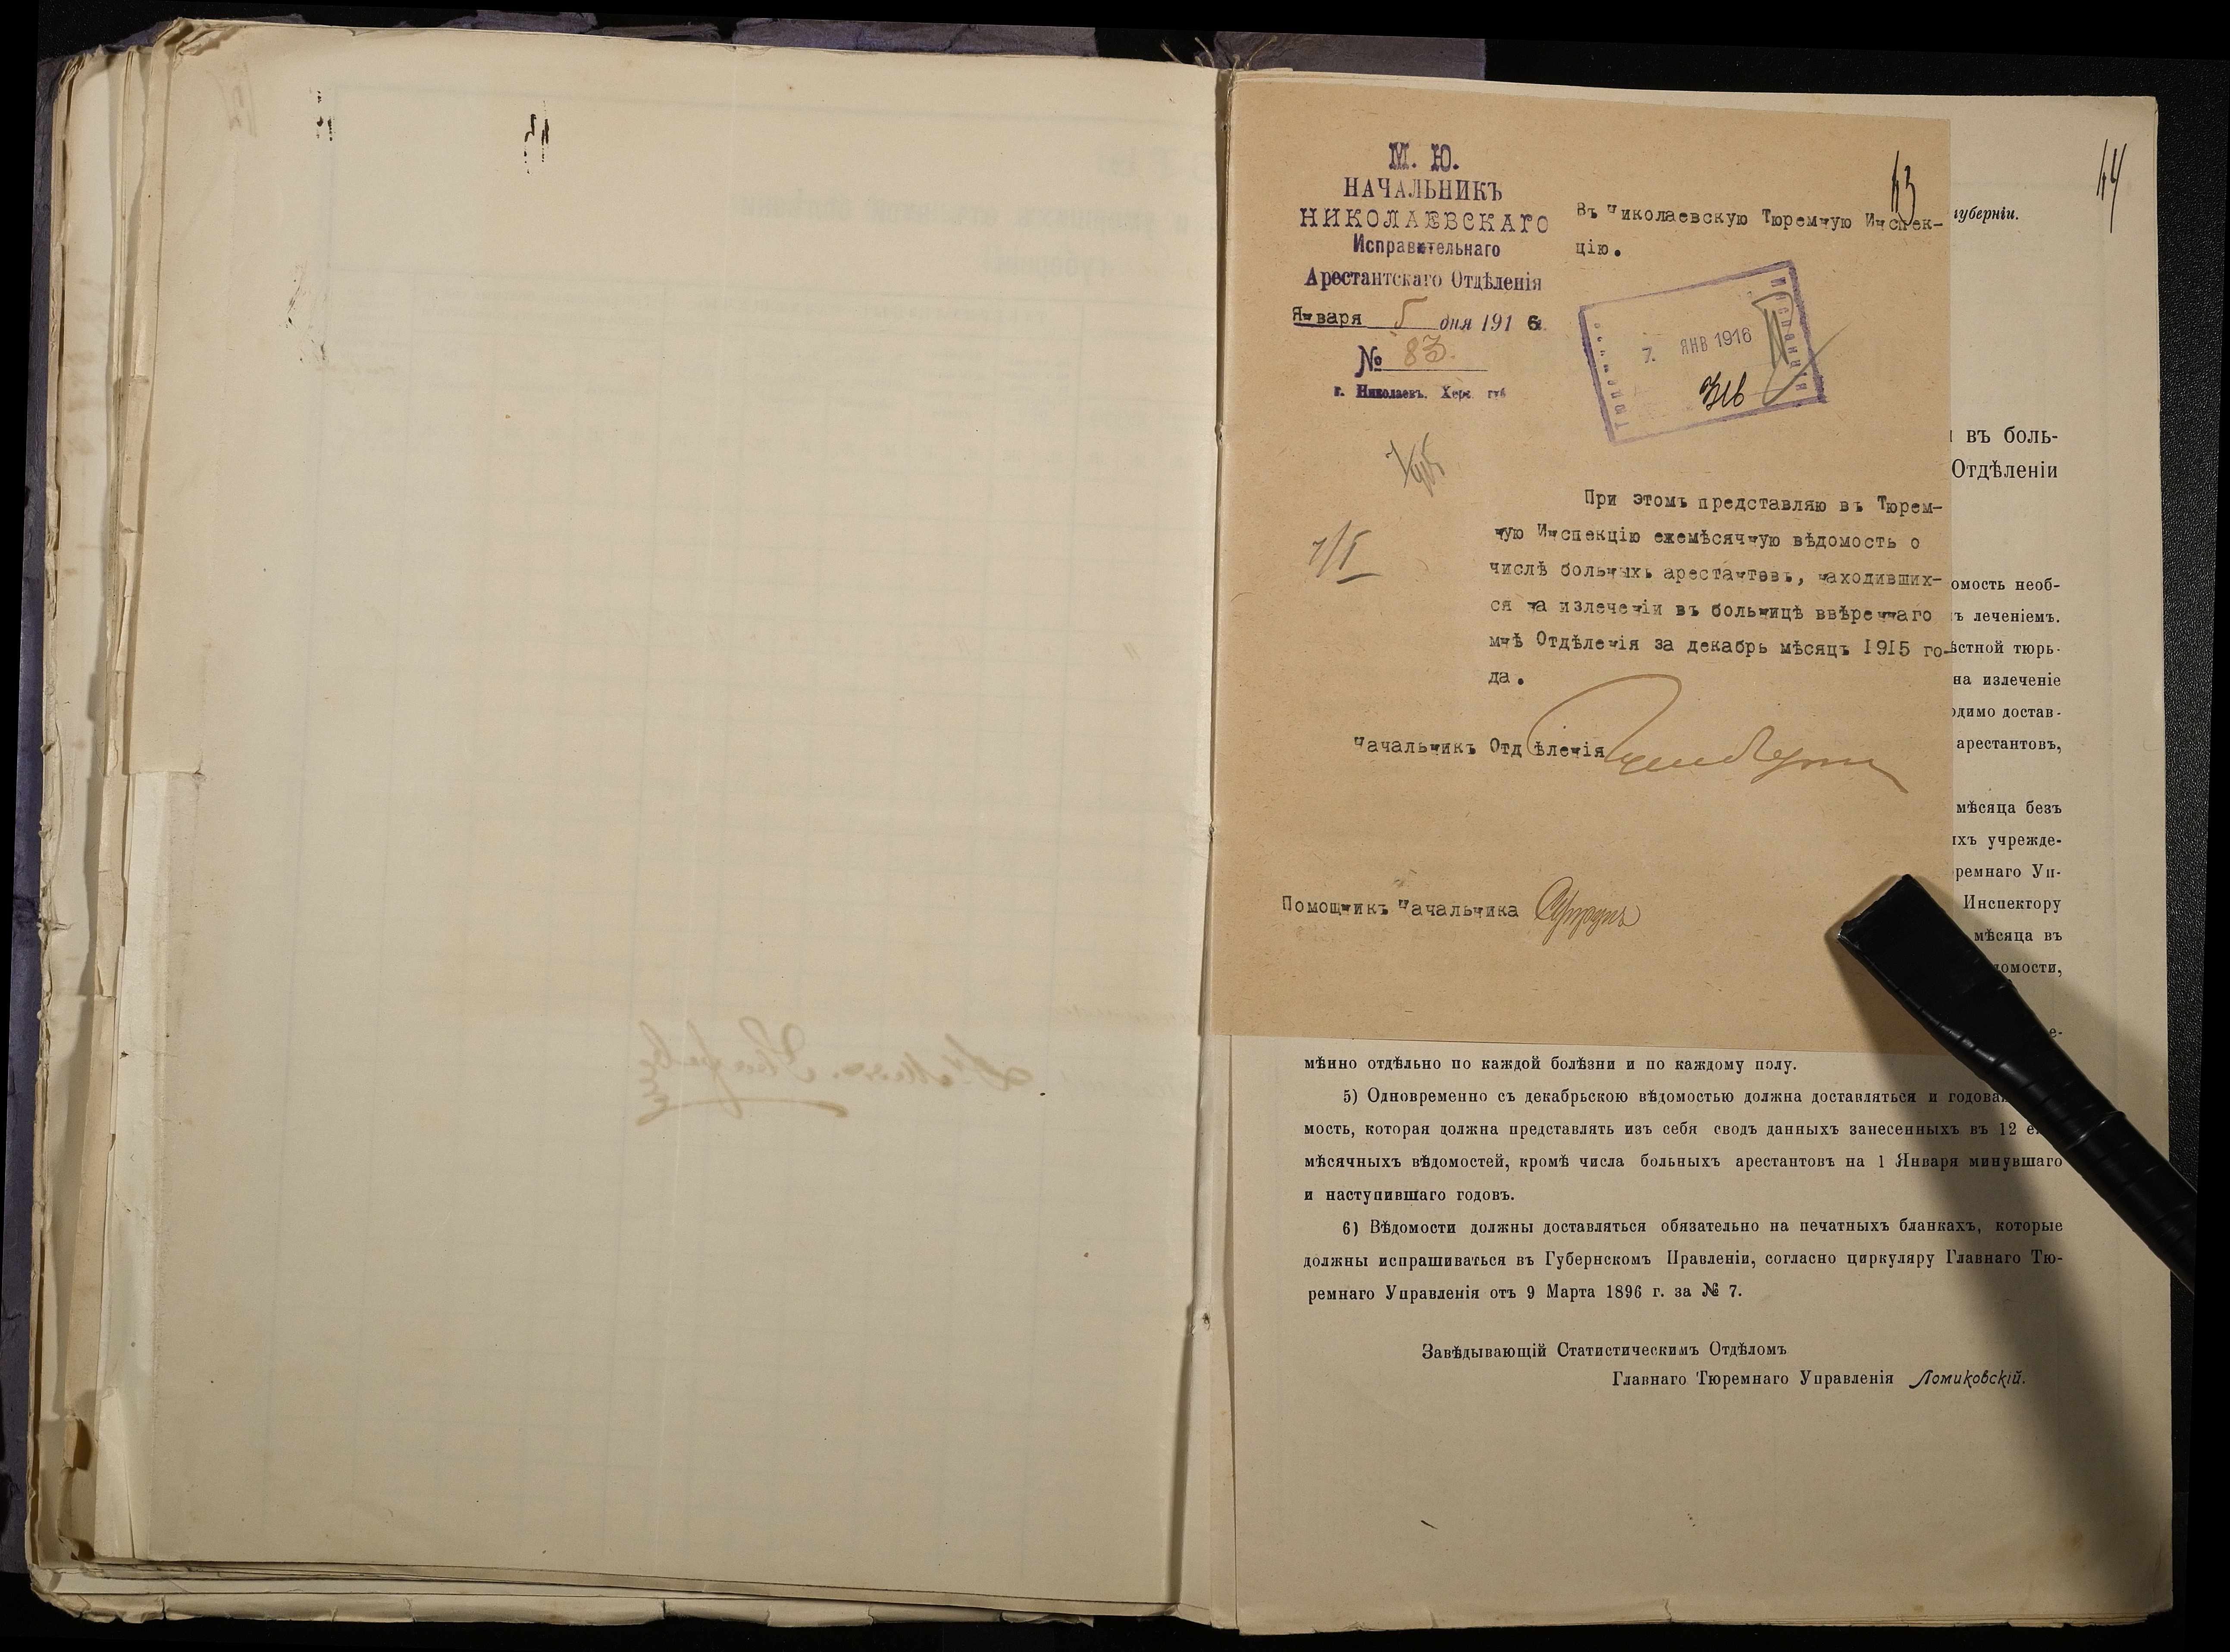 М. Ю.
НАЧАЛЬНИКЪ
НИКОЛАЕВСКАГО
Исправительнаго
Арестантскаго Отдѣленія
Января 5 дня 1916
№ 83.
г. Николаевъ. Херс. губ
43
Въ Николаевскую Тюремную Инспек-
цію.
7. ЯНВ 1916
7/I
При этомъ представляю въ Тюрем-
ную Инспекцію ежемѣсячную вѣдомость о
числѣ больныхъ арестантовъ, находивших-
ся на излеченіи въ больницѣ ввѣреннаго
мнѣ Отдѣленія за декабрь мѣсяцъ 1915 го-
да.
Начальникъ Отдѣленія
Помощникъ Начальника
44
уберніи.
въ боль-
Отдѣленіи
омость необ-
ъ леченіемъ.
ѣстной тюрь-
на излеченіе
одимо достав-
арестантовъ,
мѣсяца безъ
ихъ учрежде-
ремнаго Уп-
Инспектору
мѣсяца въ
домости,
е-
мѣнно отдѣльно по каждой болѣзни и по каждому полу.
5) Одновременно съ декабрьскою вѣдомостью должна доставляться и годова
мость, которая должна представлять изъ себя сводъ данныхъ занесенныхъ въ 12 е
мѣсячныхъ вѣдомостей, кромѣ числа больныхъ арестантовъ на 1 Января минувшаго
и наступившаго годовъ.
6) Вѣдомости должны доставляться обязательно на печатныхъ бланкахъ, которые
должны испрашиваться въ Губернскомъ Правленіи, согласно циркуляру Главнаго Тю-
ремнаго Управленія отъ 9 Марта 1896 г. за № 7.
Завѣдывающій Статистическимъ Отдѣломъ
Главнаго Тюремнаго Управленія Ломиковскій.